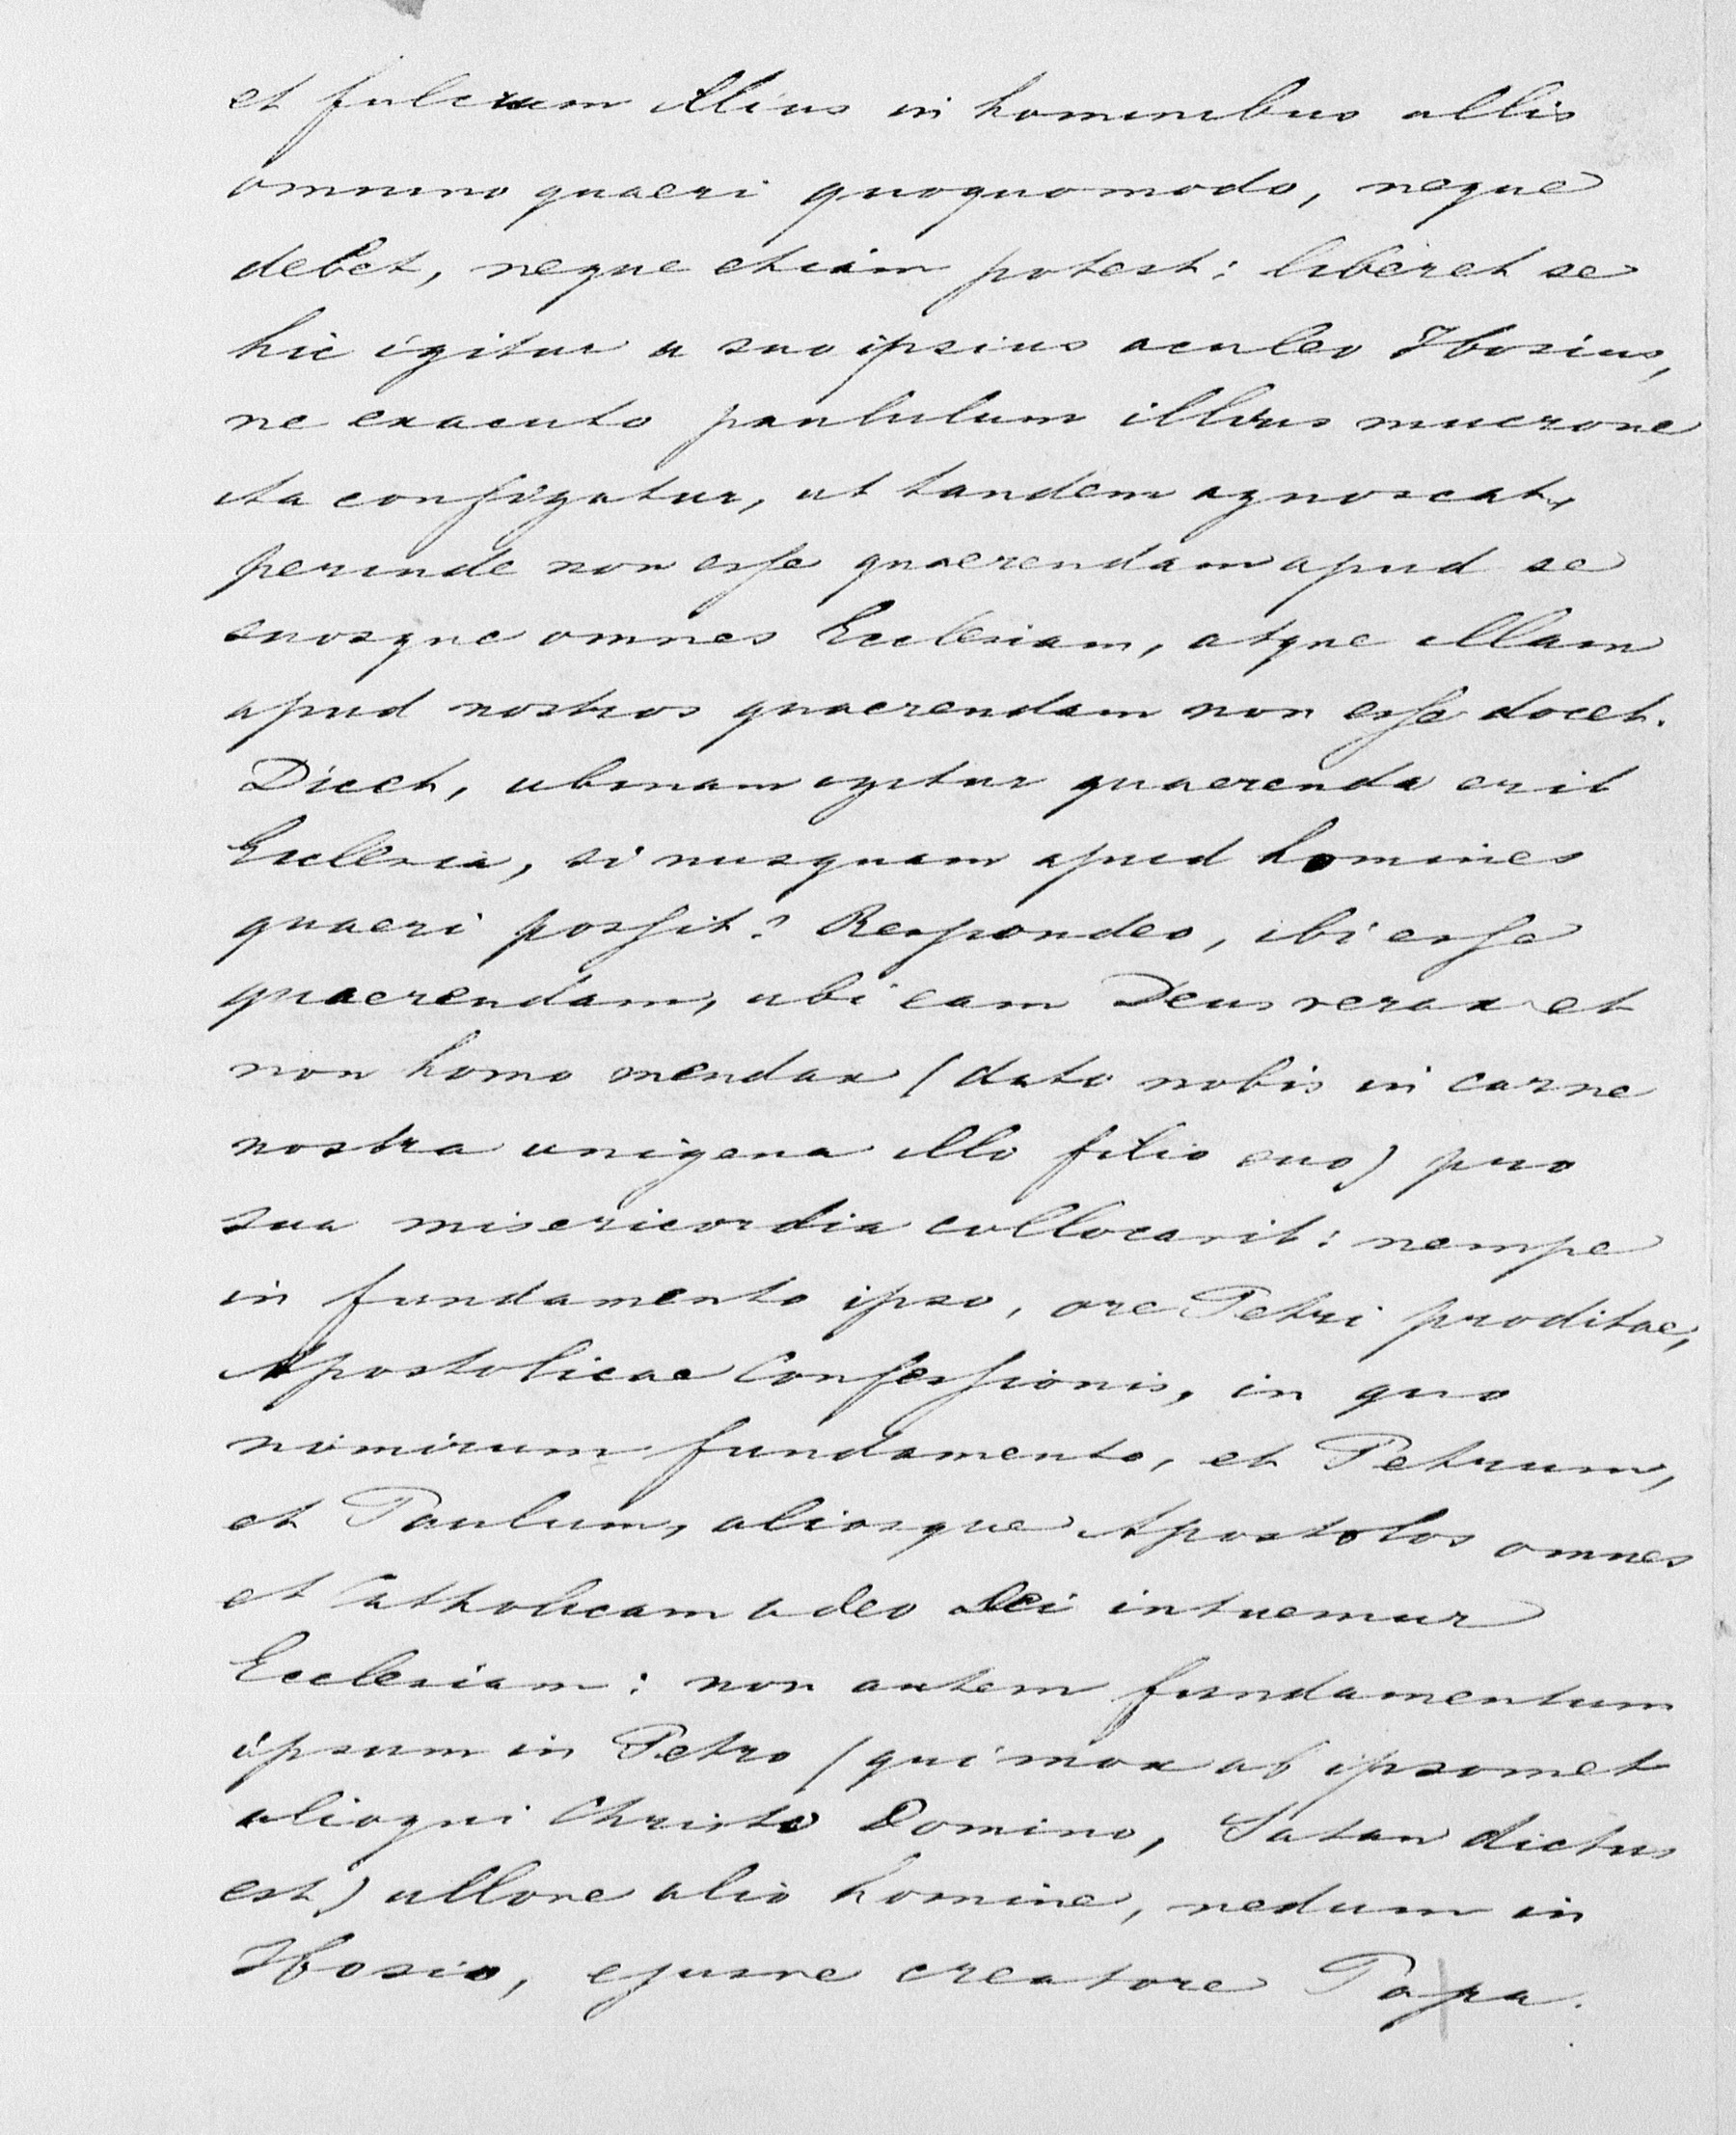 et fulcrum illius in hominibus ullis
omnino quaeri quoquomodo, neque
debet, neque etiam potest: liberet se
hic igitur a suo ipsius aculeo Hosius,
ne exacuto paululum illius mucrone
ita configatur, ut tandem agnoscat,
perinde non esse quaerendam apud se
suosque omnes Ecclesiam, atque illam
apud nostros quaerendam non esse docet.
Dicet, ubinam igitur quaerenda erit
Ecclesia, si nusquam apud homines
quaeri possit? Respondeo, ibi esse
quaerendam, ubi eam Deus verax et
non homo mendax (dato nobis in carne
nostra unigena illo filio suo) pro
sua misericordia collocarit: nempe
in fundamento ipso, ore Petri proditae,
Apostolicae Confessionis, in quo
nimirum fundamento, et Petrum,
et Paulum, aliosque Apostolos omnes
et Catholicam adeo Dei intuemur
Ecclesiam: non autem fundamentum
ipsum in Petro (qui mox ab ipsomet
alioqui Christo Domino, Satan dictus
est) ullove alio homine, nedum in
Hosio, ejusve creatore Papa.